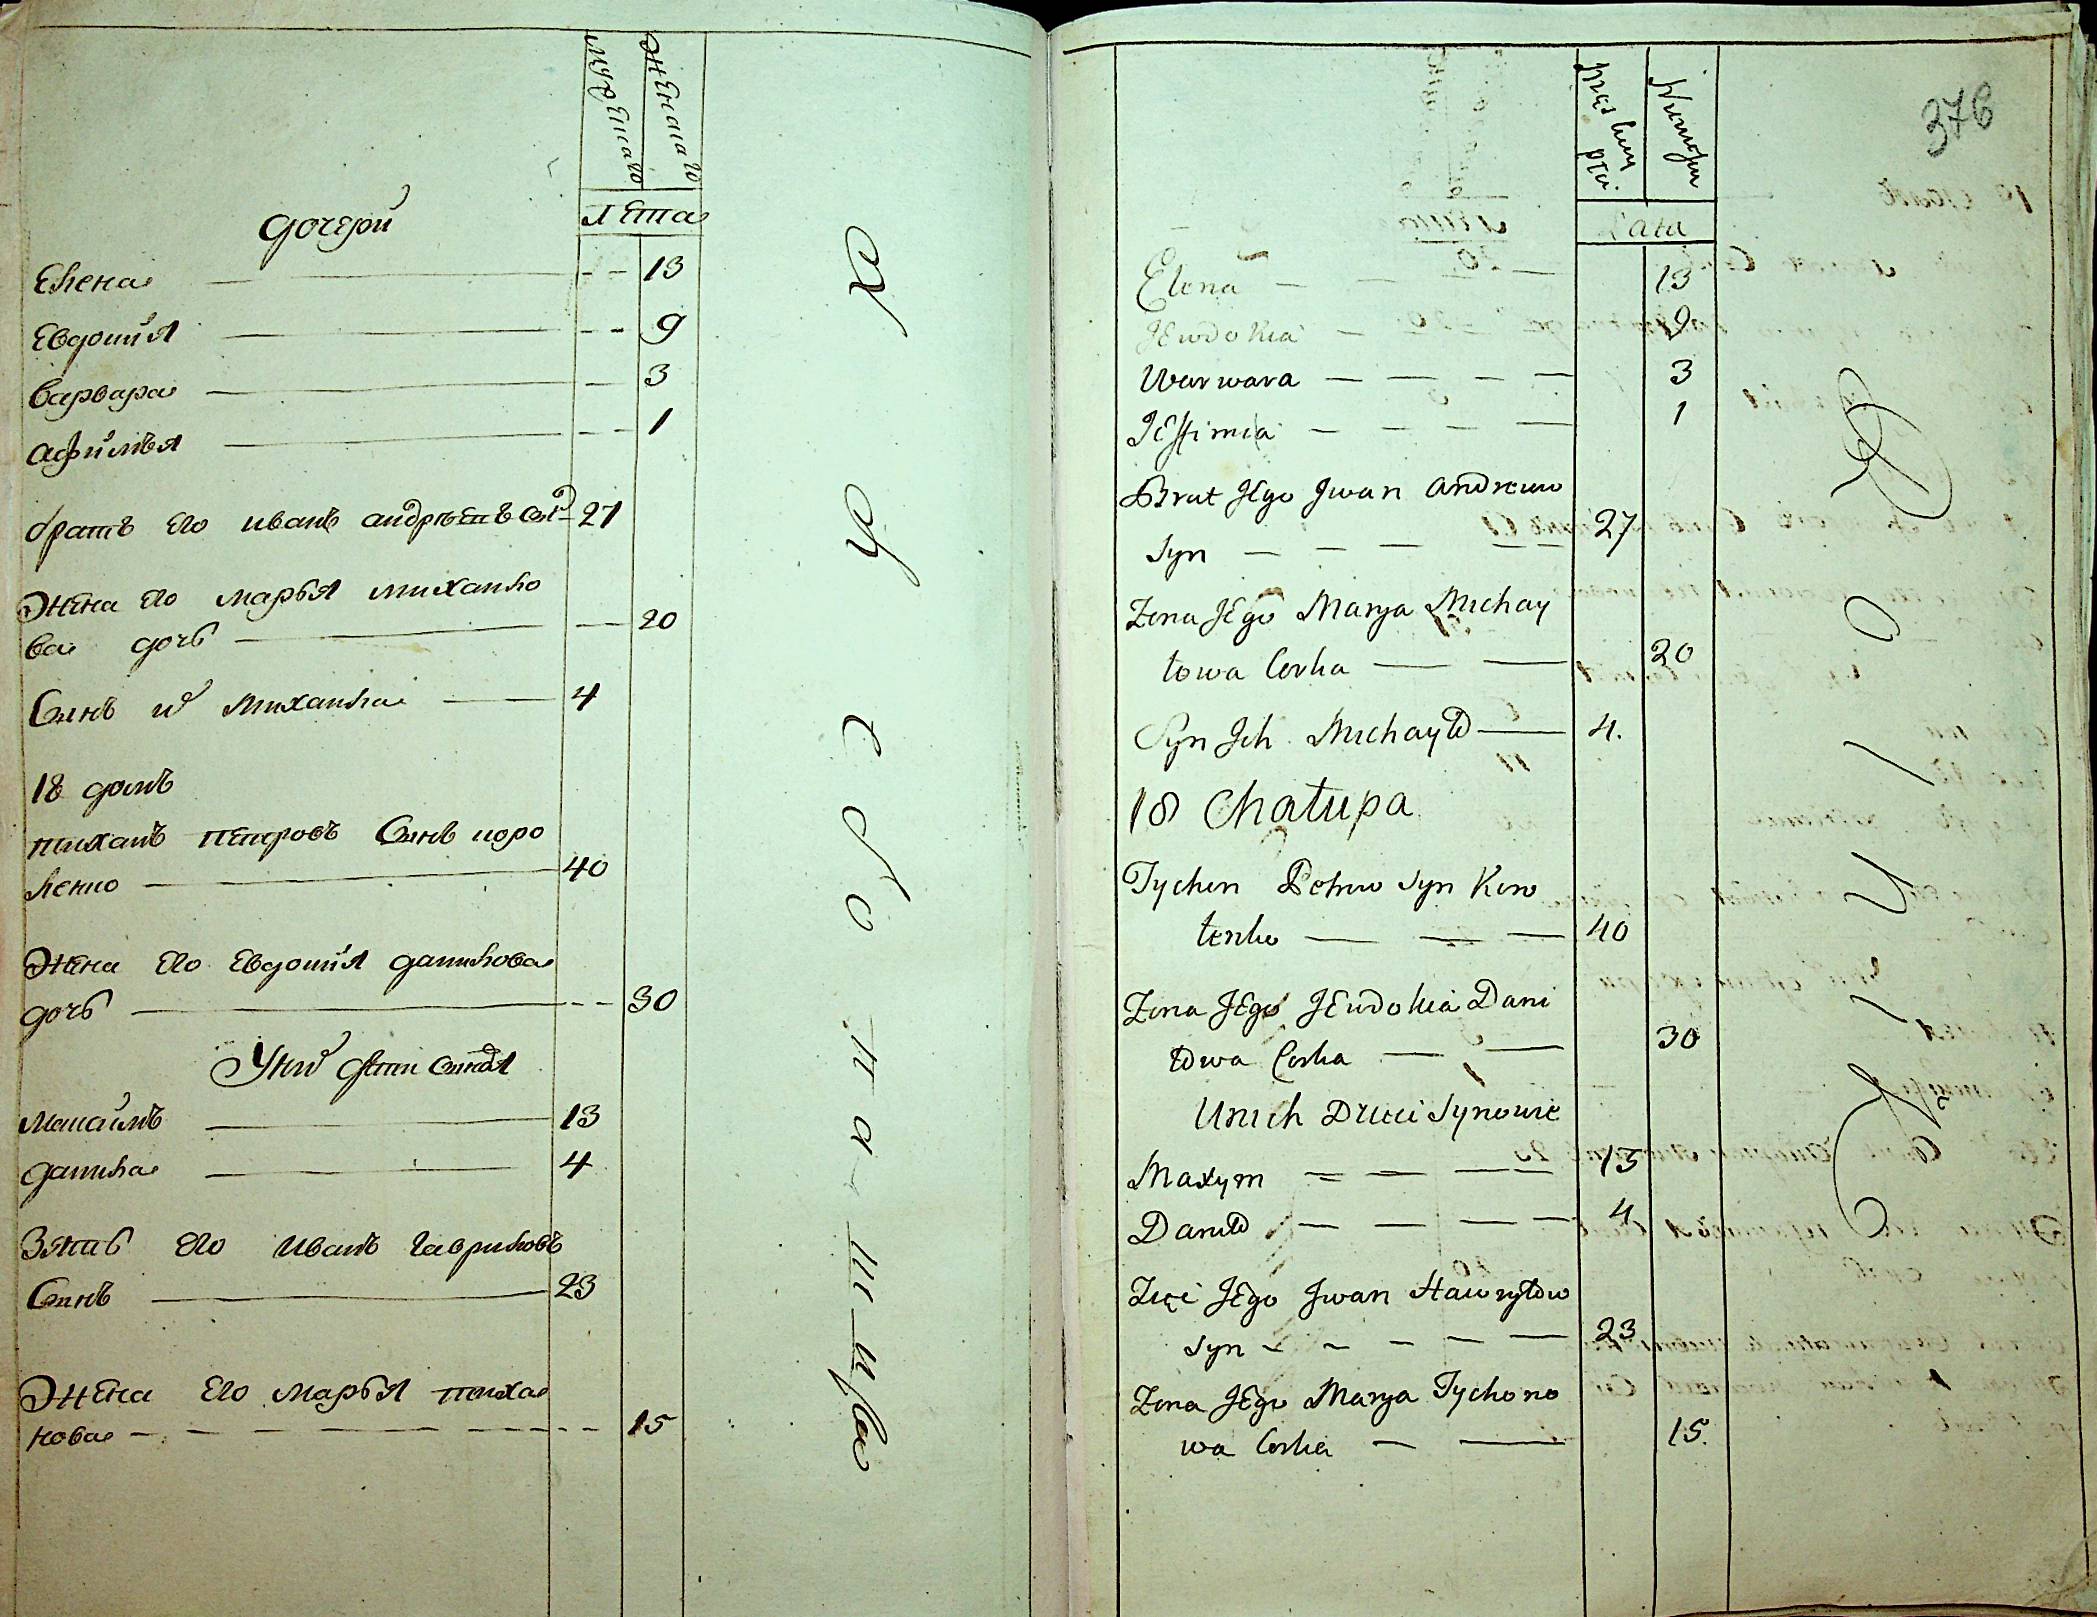 мужескаго
женскаго
лета
дочери
Елена 13
Евдокия 9
варвара 3
афимъя 1
братъ его иванъ андреевъ сынъ 27
Жена его марья михаило
ва дочь 20
Сынъ их михаила 4
18 домъ
тиханъ петровъ Сынъ коро
ленко 40
Жена его Евдокия данилова
дочь 30
У них дети сыновя
Максимъ 13
данила 4
Зять его Иванъ гавриловъ
Сынъ 23
Жена его марья тиха
новая 15
376
Lata
Elena 13
Jewdokia 9
Warwara 3
Jeffimia 1
Brat Jego Jwan Andreiow
syn 27
Zona Jego Marya Michay
łowa Corka 20
Syn Jch Michayło 4.
18 Chałupa
Tychon Petrow syn Koro
łenko 40
Zona Jego Jewdokia Dani
łowa Corka 30
Unich Dzieci Synowie
Maxym 13
Daniło 4
Zięć Jego Jwan Hawryłow
syn 23
Zona Jego Marya Tychono
wa Corka 15.